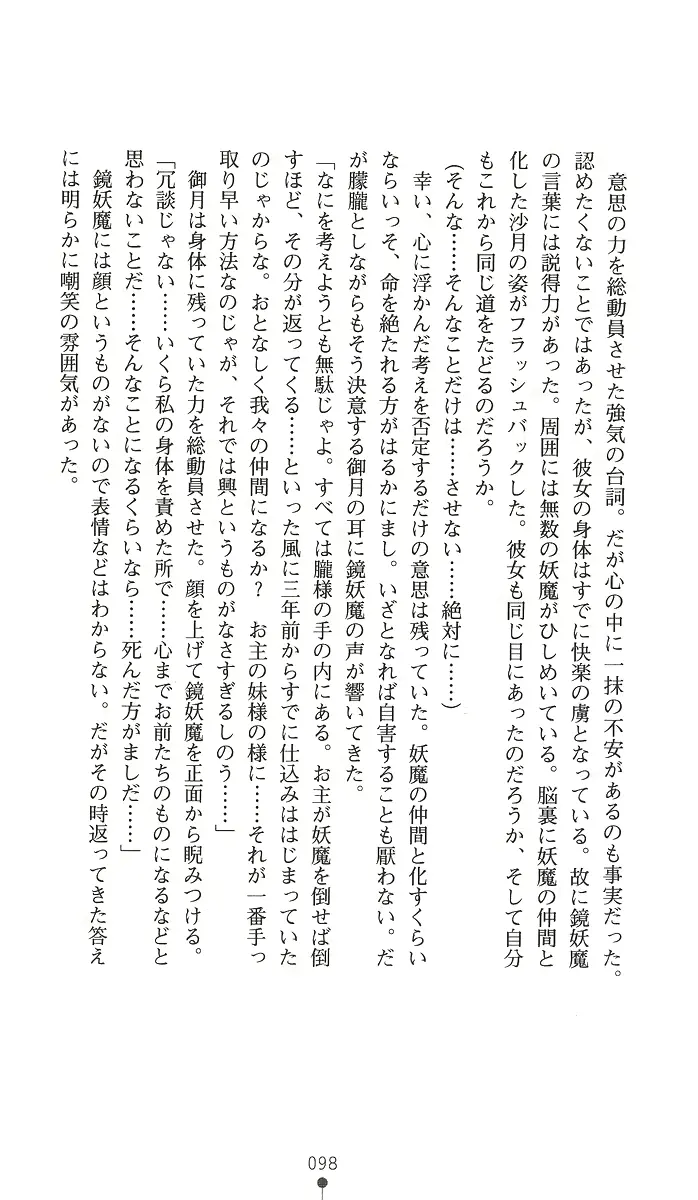 意思の力を総動員させた強気の台詞。だが心の中に一抹の不安があるのも事実だった。
認めたくないことではあったが、彼女の身体はすでに快楽の虜となっている。故に鏡妖魔
の言葉には説得力があった。周囲には無数の妖魔がひしめいている。脳裏に妖魔の仲間と
化した沙月の姿がフラッシュバックした。彼女も同じ目にあったのだろうか、そして自分
もこれから同じ道をたどるのだろうか。
（そんな……そんなことだけは……させない……絶対に……）
　幸い、心に浮かんだ考えを否定するだけの意思は残っていた。妖魔の仲間と化すくらい
ならいっそ、命を絶たれる方がはるかにまし。いざとなれば自害することも厭わない。だ
が朦朧としながらもそう決意する御月の耳に鏡妖魔の声が響いてきた。
「なにを考えようとも無駄じゃよ。すべては朧様の手の内にある。お主が妖魔を倒せば倒
すほど、その分が返ってくる……といった風に三年前からすでに仕込みははじまっていた
のじゃからな。おとなしく我々の仲間になるか？　お主の妹様の様に……それが一番手っ
取り早い方法なのじゃが、それでは興というものがなさすぎるしのう……」
　御月は身体に残っていた力を総動員させた。顔を上げて鏡妖魔を正面から睨みつける。
「冗談じゃない……いくら私の身体を責めた所で……心までお前たちのものになるなどと
思わないことだ……そんなことになるくらいなら……死んだ方がましだ……」
　鏡妖魔には顔というものがないので表情などはわからない。だがその時返ってきた答え
には明らかに嘲笑の雰囲気があった。
098